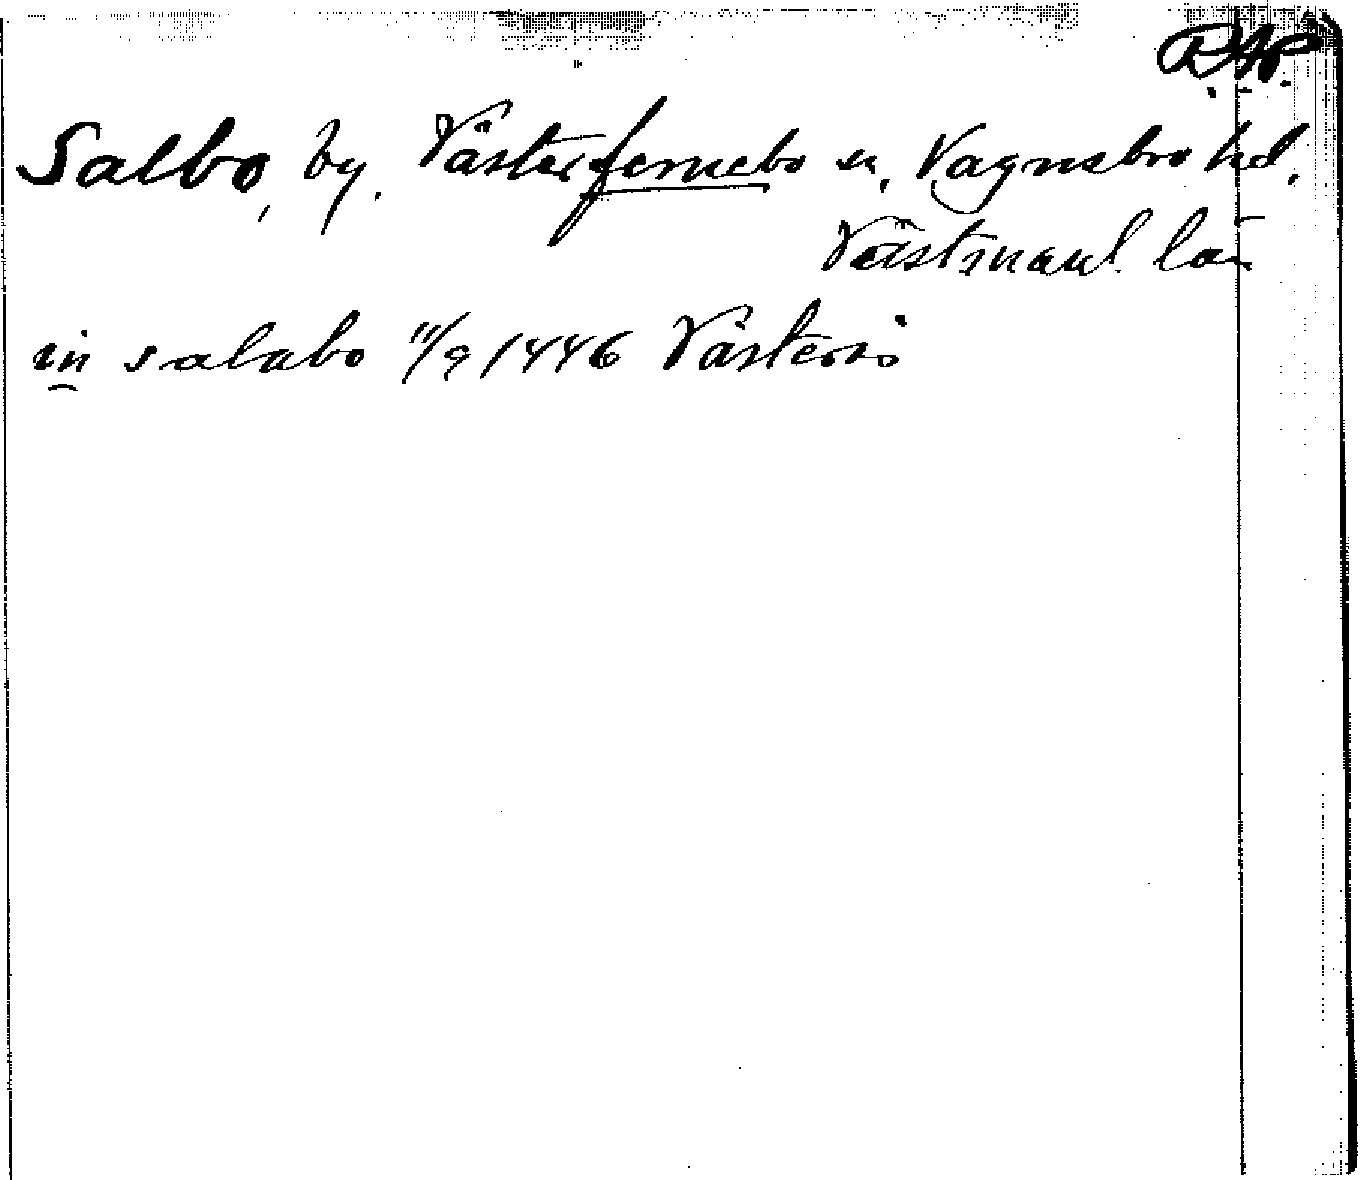 Salbo, by. Västerfernebo sn, Vagnsbro hd.
Västmanl. län
in salabo 11/9 1446 Västerås